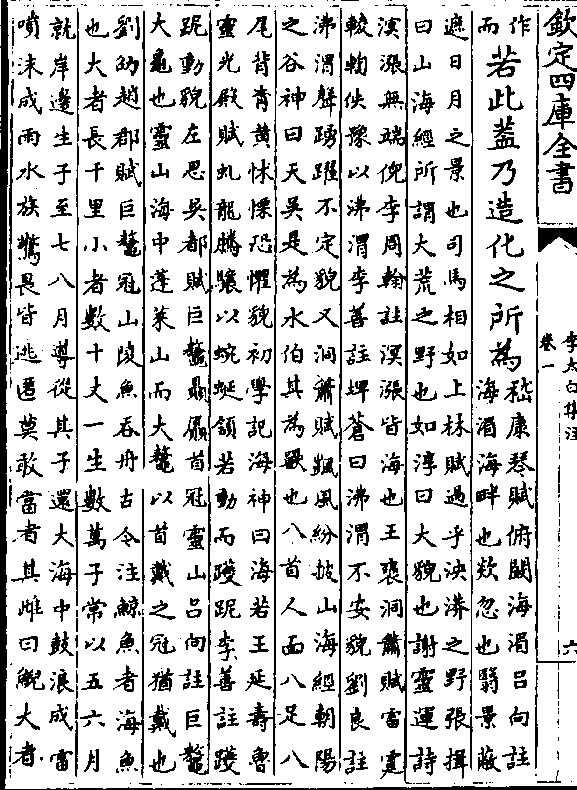 欽定四庫全書
李太白集注
卷一
六
作
而
若此蓋乃造化之所為
嵇康琴賦俯闞海湄吕向註
海湄海畔也欻忽也翳景蔽
遮日月之景也司馬相如上林賦過乎泱漭之野張揖
曰山海經所謂大荒之野也如淳曰大貌也謝靈運詩
溟漲無端倪李周翰註溟漲皆海也王褒洞簫賦雷霆
輘輷佚豫以沸渭李善註埤蒼曰沸渭不安貌劉良註
沸渭聲踴躍不定貌又洞簫賦颯風紛披山海經朝陽
之谷神曰天吳是為水伯其為獸也八首人面八足八
尾背青黃怵慄恐懼貌初學記海神曰海若王延壽魯
靈光殿賦虬龍騰驤以蜿蜒頷若動而躨跜李善註躨
跜動貌左思吳都賦巨鼇贔屭首冠靈山吕向註巨鼇
大龜也靈山海中蓬萊山而大鼇以首戴之冠猶戴也
劉劭趙郡賦巨鼇冠山陵魚吞舟古今注鯨魚者海魚
也大者長千里小者數十丈一生數萬子常以五六月
就岸邊生子至七八月導從其子還大海中鼓浪成雷
噴沫成雨水族驚畏皆逃匿莫敢當者其雌曰鯢大者